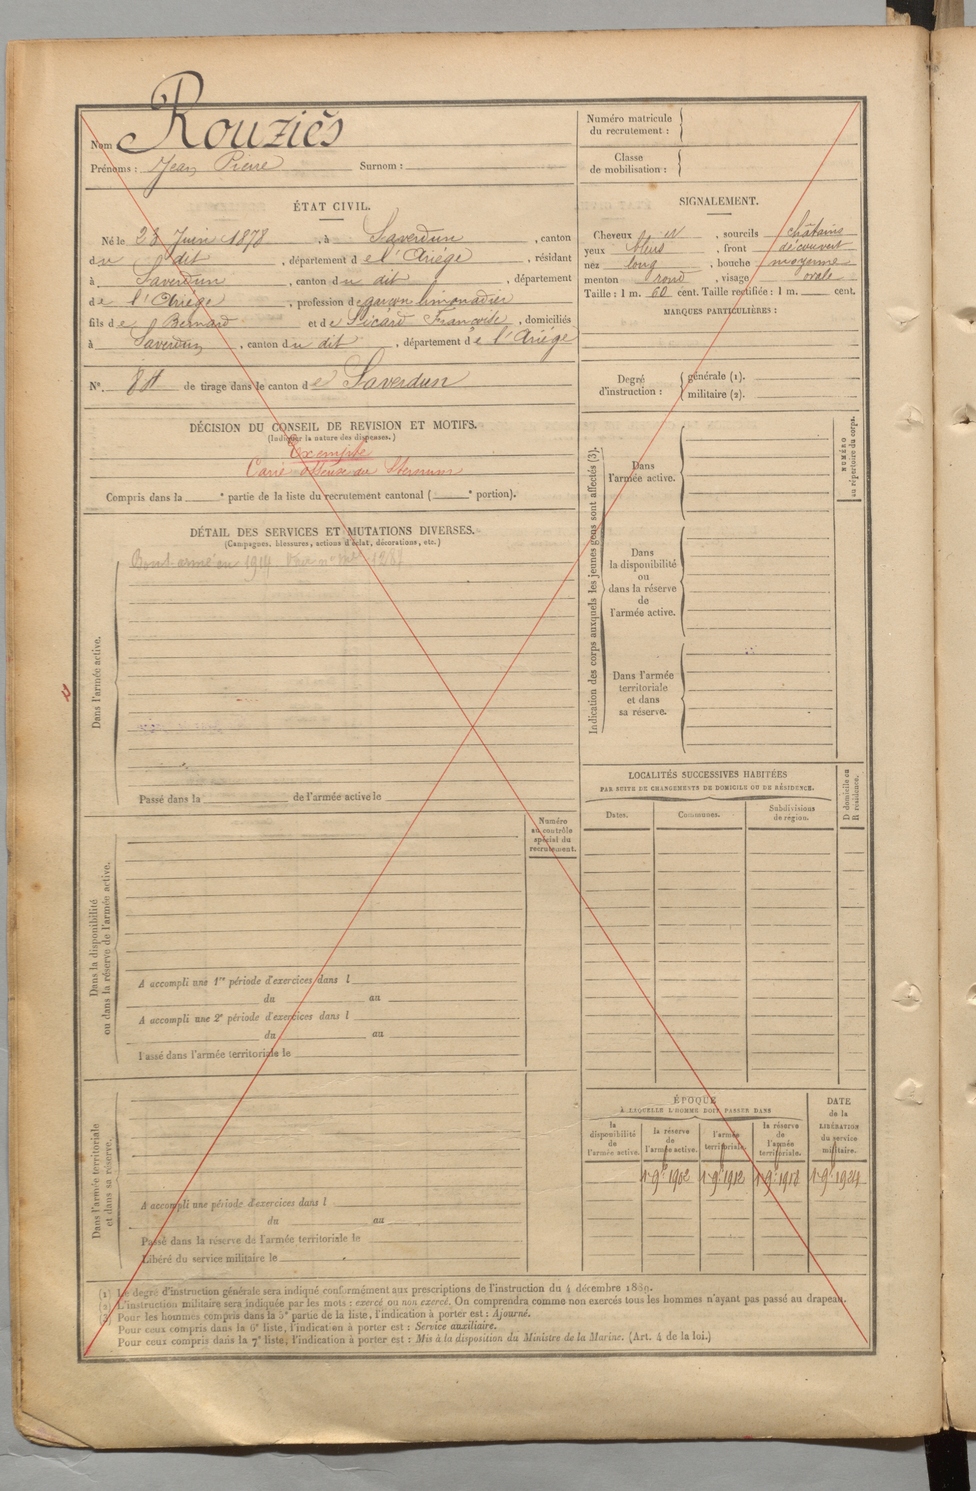 Nom Rouziès
Prénoms : Jean Pierre Surnom :
ÉTAT CIVIL.
Né le 23 Juin 1878, à Saverdun, canton
du dit, département de l'Ariége, résidant
à Saverdun, canton du dit, département
de l'Ariége, profession de garçon limonadier
fils de Bernard et de Sicard Françoise, domiciliés
à Saverdun, canton du dit, département de l'Ariége
N° de tirage dans le canton de Saverdun
DÉCISION DU CONSEIL DE REVISION ET MOTIFS.
(Indiquer la nature des dispenses.)
Exempté
Carie du Sternum
Compris dans la e partie de la liste du recrutement cantonal ( e portion).
DÉTAIL DES SERVICES ET MUTATIONS DIVERSES.
(Campagnes, blessures, actions d'éclat, décorations, etc.)
en 1914
Dans l'armée active.
Passé dans la de l'armée active le
Numéro
au contrôle
spécial du
recrutement.
Dans la disponibilité
ou dans la réserve de l'armée active.
A accompli une 1re période d'exercices dans l
du au
A accompli une 2e période d'exercices dans l
du au
Passé dans l'armée territoriale le
Dans l'armée territoriale
et dans sa réserve.
A accompli une période d'exercices dans l
du au
Passé dans la réserve de l'armée territoriale le
Libéré du service militaire le
Numéro matricule
du recrutement :
Classe
de mobilisation :
SIGNALEMENT.
Cheveux , sourcils châtains
yeux bleus, front découvert
nez long, bouche moyenne
menton rond, visage ovale
Taille : 1 m. 60 cent. Taille rectifiée : 1 m. cent.
MARQUES PARTICULIÈRES :
Degré
d'instruction :
générale (1).
militaire (2).
Indication des corps auxquels les jeunes gens sont affectés (3).
NUMÉRO
au répertoire du corps.
Dans
l'armée active.
Dans
la disponibilité
ou
dans la réserve
de
l'armée active.
Dans l'armée
territoriale
et dans
sa réserve.
LOCALITÉS SUCCESSIVES HABITÉES
PAR SUITE DE CHANGEMENTS DE DOMICILE OU DE RÉSIDENCE.
D domicile ou
R résidence.
Dates. Communes. Subdivisions
de région.
ÉPOQUE
À LAQUELLE L'HOMME DOIT PASSER DANS
DATE
de la
LIBÉRATION
du service
militaire.
la
disponibilité
de
l'armée active.
la réserve
de
l'armée active.
l'armée
territoriale.
la réserve
de
l'armée
territoriale.
1er 9bre 1902 1er 9bre 1912 1er 9bre 1918 1er 9bre 1924
(1) Le degré d'instruction générale sera indiqué conformément aux prescriptions de l'instruction du 4 décembre 1889.
(2) L'instruction militaire sera indiquée par les mots : exercé ou non exercé. On comprendra comme non exercés tous les hommes n'ayant pas passé au drapeau.
(3) Pour les hommes compris dans la 5e partie de la liste, l'indication à porter est : Ajourné.
Pour ceux compris dans la 6e liste, l'indication à porter est : Service auxiliaire.
Pour ceux compris dans la 7e liste, l'indication à porter est : Mis à la disposition du Ministre de la Marine. (Art. 4 de la loi.)